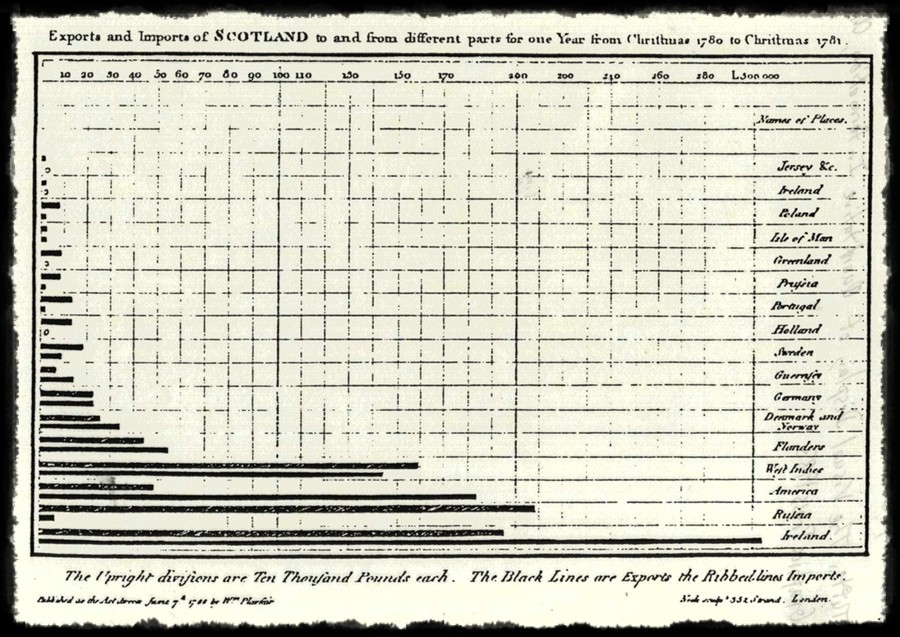 Exports and Imports of SCOTLAND to and from different parts for one Year from Chriſtmas 1780 to Chriſtmas 1781.
10 20 30 40 50 60 70 80 90 100 110 130 150 170 200 200 210 260 280 L300 000
Names of Places.
Jerſey &c.
Ireland
Poland
Iſle of Man
Greenland
Pruſsia
Portugal
Holland
Sweden
Guernſey
Germany
Denmark and
Norway
Flanders
Weſt Indies
America
Ruſsia
Ireland
The Upright diviſions are Ten Thouſand Pounds each. The Black Lines are Exports the Ribbed lines Imports.
Published as the Act directs June 7th 1786 by Wm. Playfair
Neele sculpt. 352 Strand, London.